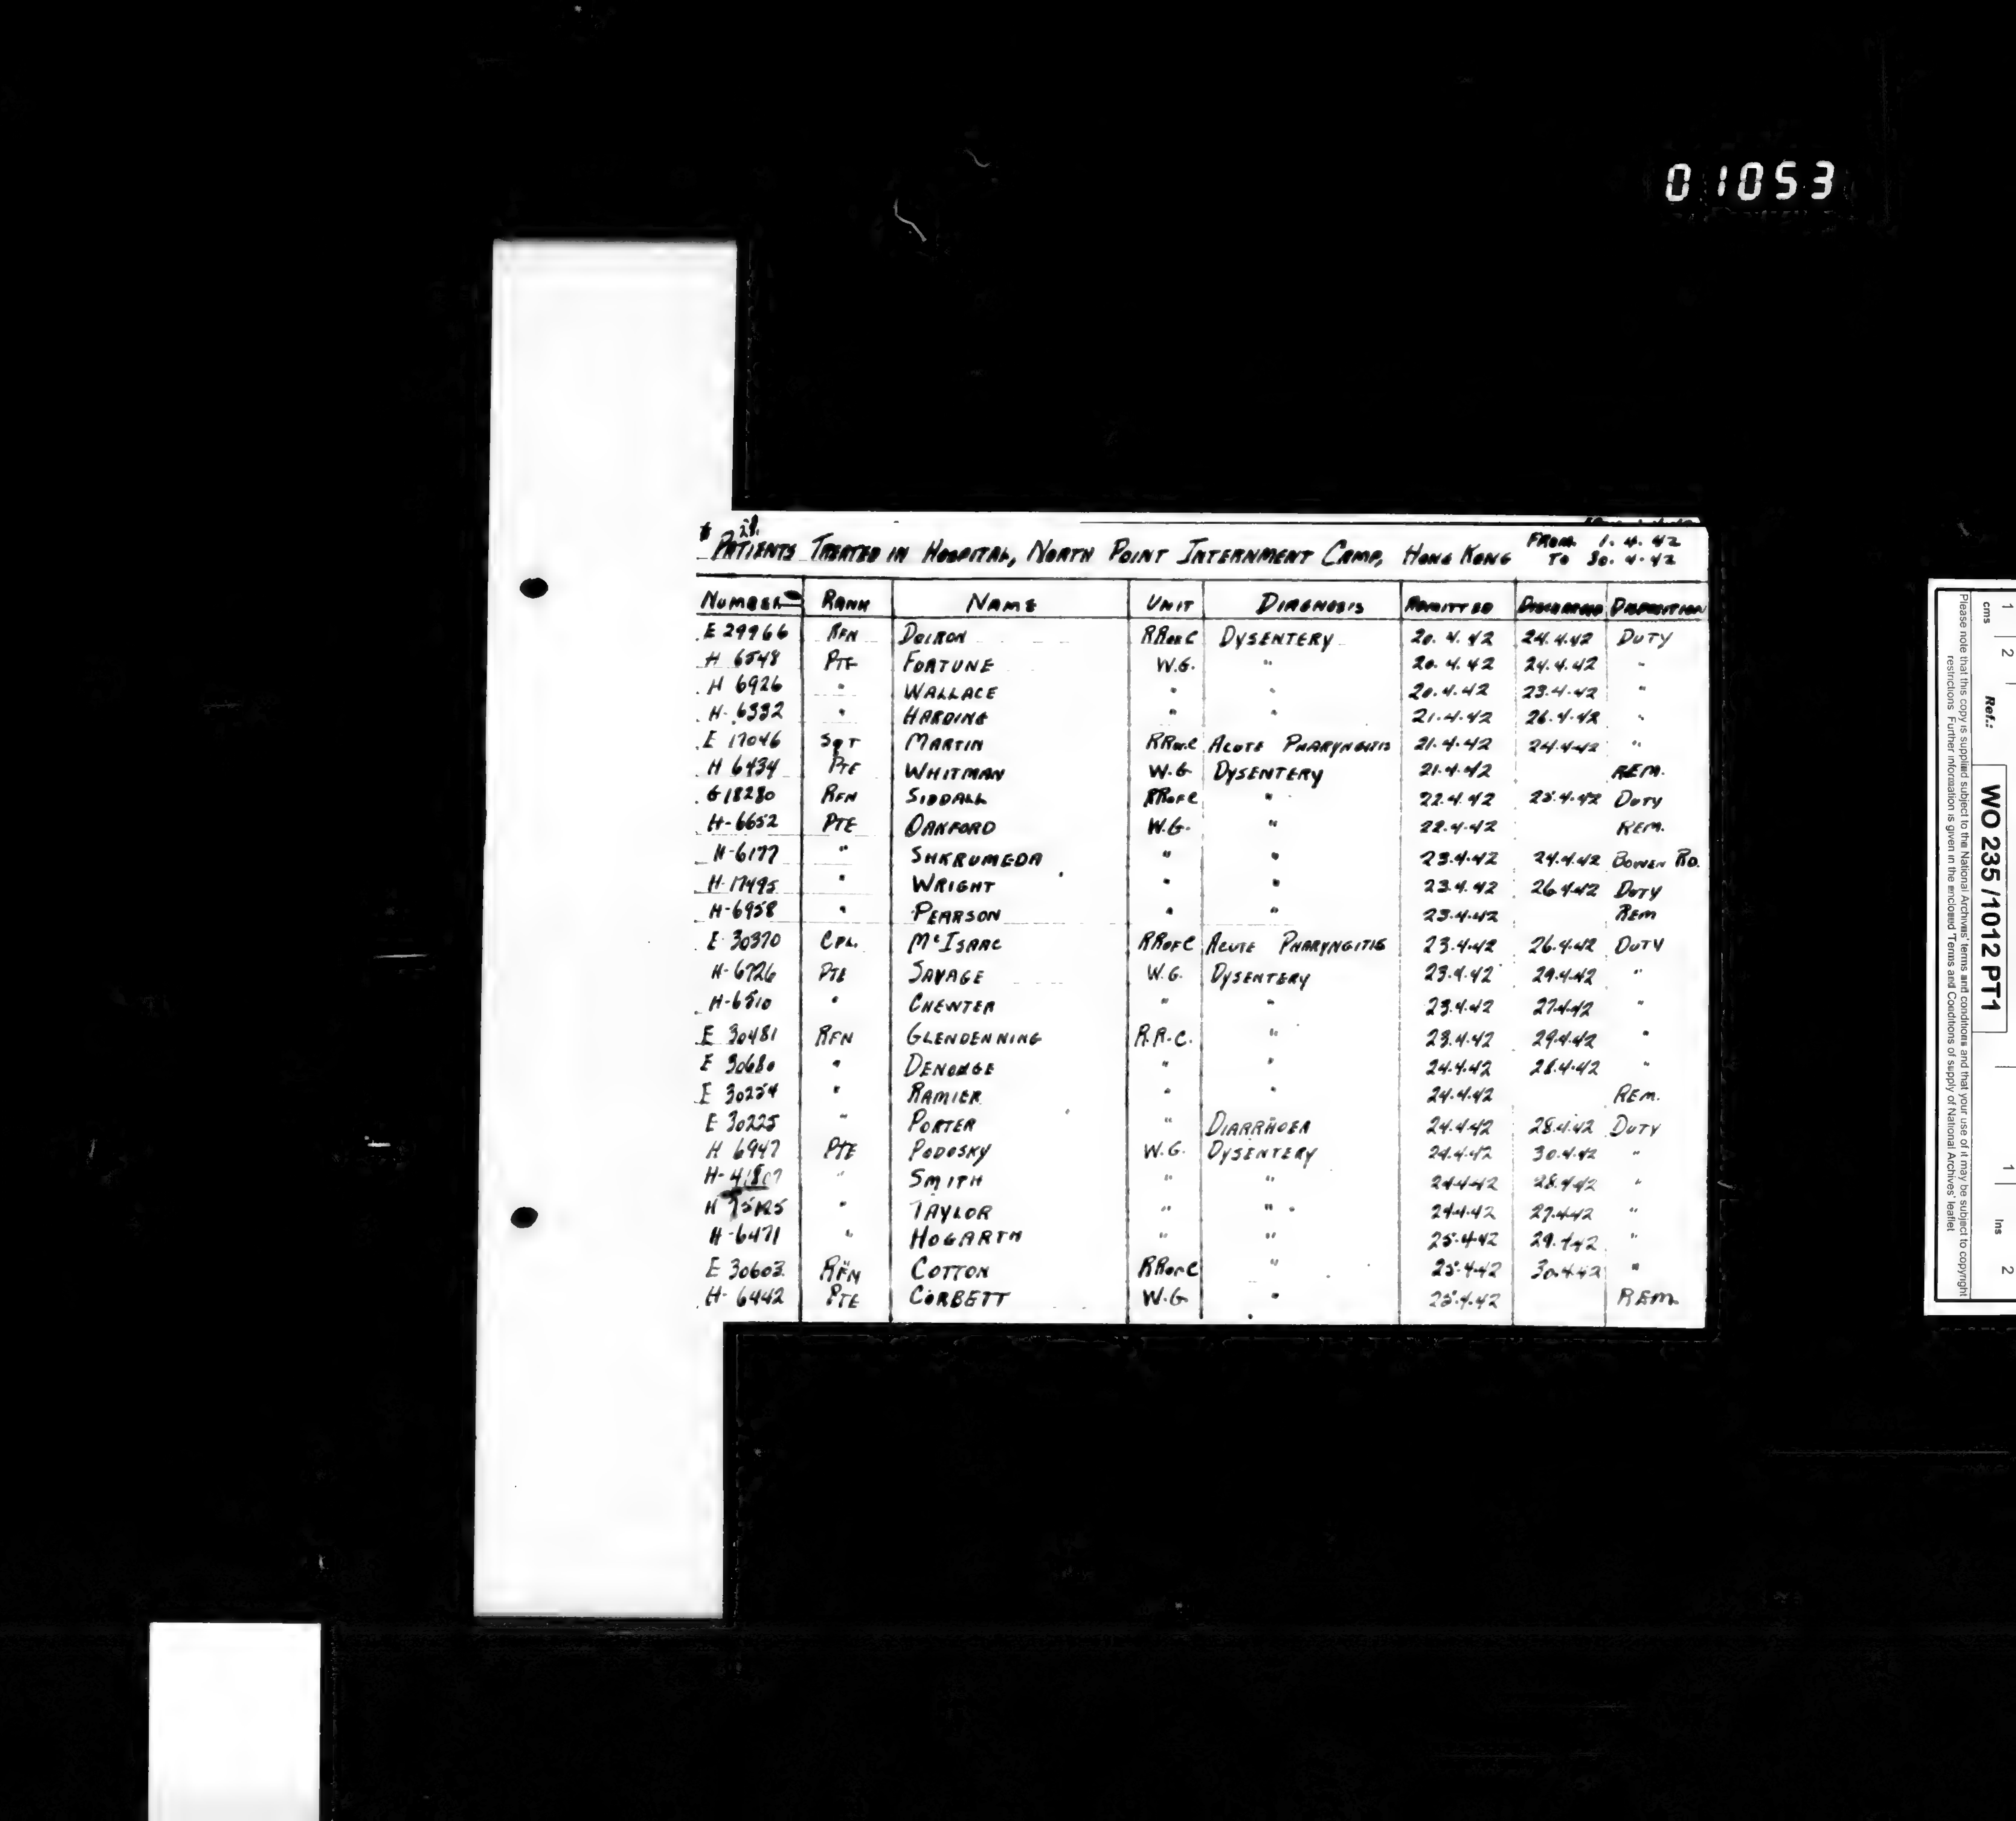 01053
28.
PATIENTS TREATED IN HOSPITAL, NORTH POINT INTERNMENT CAMP, HONG KONG FROM 1.4.42
TO 30.4.42
NUMBER RANK NAME UNIT DIAGNOSIS ADMITTED DISCHARGED DISPOSITION
E 29966 RFN DOIRON RROFC DYSENTERY 20.4.42 24.4.42 DUTY
H 6548 PTE FORTUNE W.G. " 20.4.42 24.4.42 "
H 6926 " WALLACE " " 20.4.42 23.4.42 "
H-6332 " HARDING " " 21.4.42 26.4.42 "
E 17046 SGT MARTIN RROFC ACUTE PHARYNGITIS 21.4.42 24.4.42 "
H 6434 PTE WHITMAN W.G. DYSENTERY 21.4.42 REM.
G 18280 RFN SIDDALL RROFC " 22.4.42 25.4.42 DUTY
H-6652 PTE OAKFORD W.G. " 22.4.42 REM.
H-6177 " SHKRUMEDA " " 23.4.42 24.4.42 BOWEN RD.
H-17495 " WRIGHT " " 23.4.42 26.4.42 DUTY
H-6958 " PEARSON " " 23.4.42 REM
E 30370 CPL. McISAAC RROFC ACUTE PHARYNGITIS 23.4.42 26.4.42 DUTY
H-6726 PTE SAVAGE W.G. DYSENTERY 23.4.42 29.4.42 "
H-6510 " CHEWTER " " 23.4.42 27.4.42 "
E 30481 RFN GLENDENNING R.R.C. " 23.4.42 29.4.42 "
E 30680 " DENONGE " " 24.4.42 28.4.42 "
E 30254 " RAMIER " " 24.4.42 REM.
E 30225 " PORTER " DIARRHOEA 24.4.42 28.4.42 DUTY
H 6947 PTE PODOSKY W.G. DYSENTERY 24.4.42 30.4.42 "
H- " SMITH " " 24.4.42 28.4.42 "
H " TAYLOR " " 24.4.42 27.4.42 "
H-6471 " HOGARTH " " 25.4.42 29.4.42 "
E 30603 RFN COTTON RROFC " 25.4.42 30.4.42 "
H-6442 PTE CORBETT W.G. " 25.4.42 REM.
cms 1 2 Ref.: WO 235/1012 PT1 1 Ins 2
Please note that this copy is supplied subject to the National Archives' terms and conditions and that your use of it may be subject to copyright
restrictions. Further information is given in the enclosed 'Terms and Conditions of supply of National Archives' leaflet